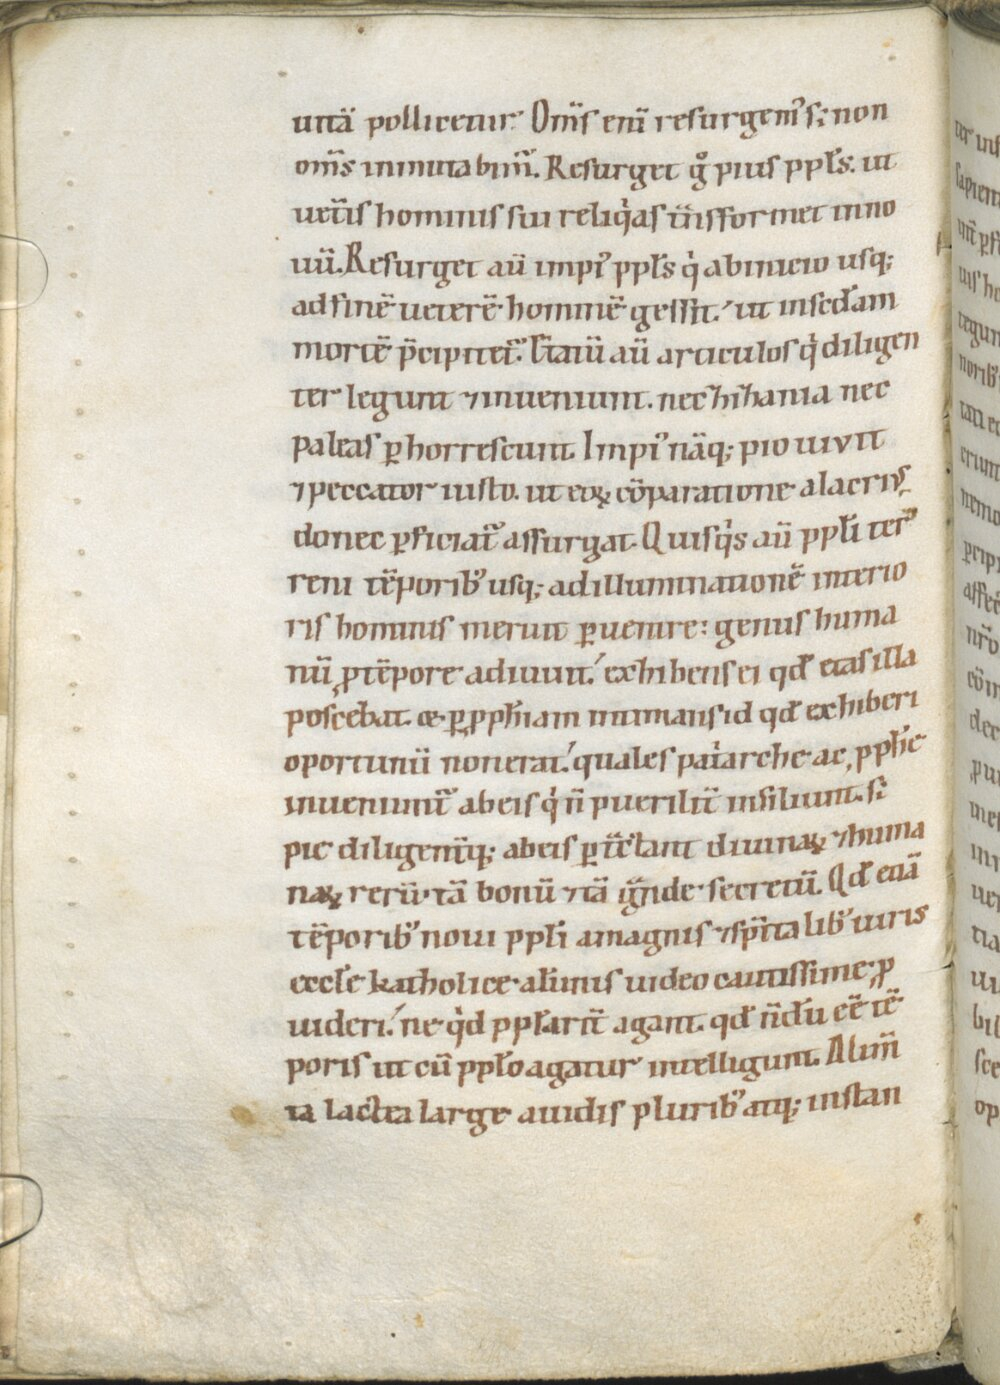 uitā pollicetur. Om̄s enī resurgem᷒ s; non
om̄s inmutabim̄. Resurget gͦ pius ppl̄s. ut
uet̄is hominis sui reliqͥas t̄nsformet in no
uū. Resurget aū impi᷒ ppl̄s qͥ ab inicio usq;
ad finē ueterē hominē gessit. ut in scd̄am
mortē p̄cipitet᷑. Cetaiū aū articulos qͥ diligen
ter legunt ⁊ inueniunt. nec hiz̄ania nec
paleas ꝑhorrescunt. Impi᷒ nāq; pio uiuit
⁊ peccator iusto. ut eoꝝ cōparatione alacri᷒
donec ꝑficiat᷑ assurgat. Quisqͥs aū ppl̄i ter
reni tēporib᷒ usq; ad illuminationē interio
ris hominis meruit ꝑuenire: genus huma
nū ꝓ tēpore adiuuit. exhibens ei qd̄ etas illa
poscebat. & ꝑ ꝓph̄iam intimans id qd̄ exhiberi
oportunū non erat. quales pat̄arche ac ꝓph̄e
inueniunt᷑ ab eis qͥ n̄ puerilit̄ insiliunt. s;
pie diligent̄q; ab eis ꝑt̄ctant diuinaꝝ ⁊ huma
naꝝ rerū tā bonū ⁊ tā ḡnde secretū. Qd̄ etiā
tēporib᷒ noui ppl̄i a magnis ⁊ sp̄italib᷒ uiris
eccl̄e katholice alūnis uideo cautissime ꝓ
uideri. ne qͥd ppl̄arit̄ agant. qd̄ n̄dū eē tē
poris ut cū ppl̄o agatur intelligunt. Alim̄
ta lactea large auidis plurib᷒ atq; instan